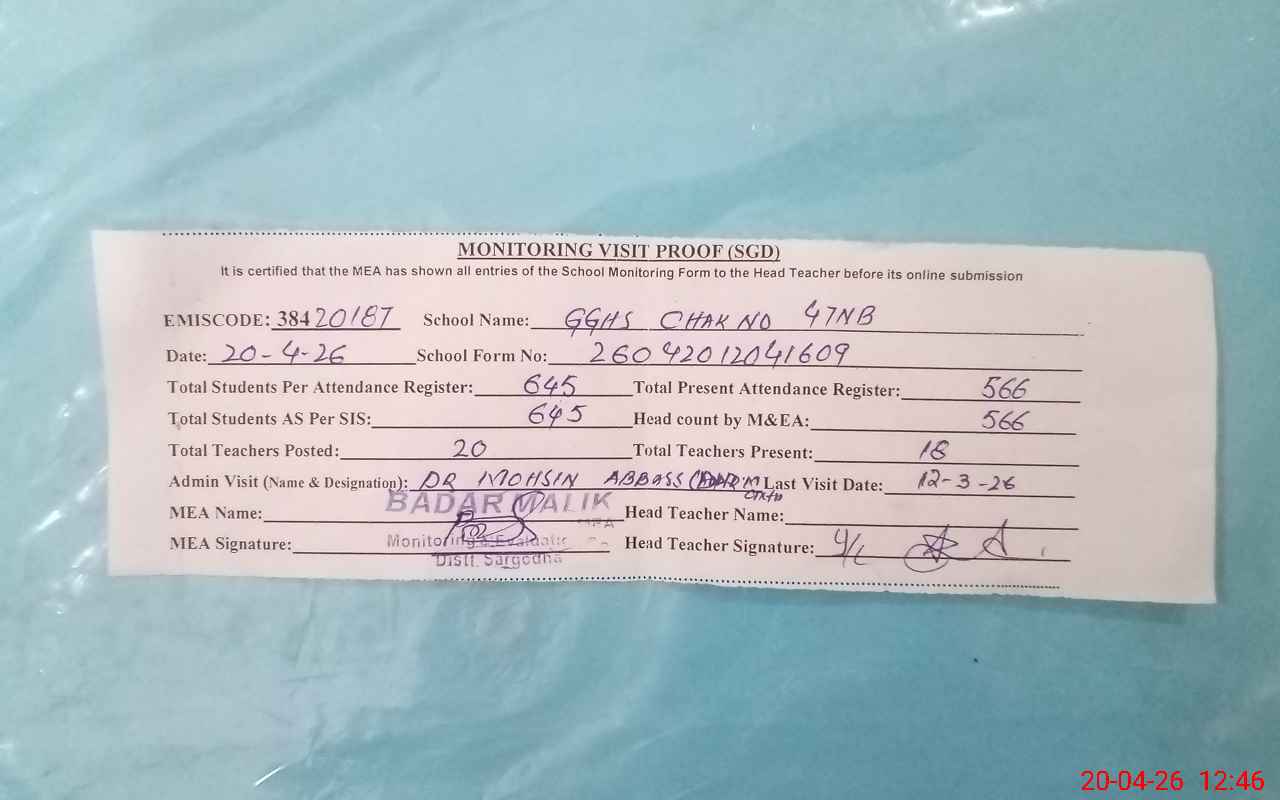 MONITORING VISIT PROOF (SGD)
It is certified that the MEA has shown all entries of the School Monitoring Form to the Head Teacher before its online submission
EMISCODE: 38420187 School Name: GGHS CHAK NO 47NB
Date: 20-4-26 School Form No: 26042012041609
Total Students Per Attendance Register: 645 Total Present Attendance Register: 566
Total Students AS Per SIS: 645 Head count by M&EA: 566
Total Teachers Posted: 20 Total Teachers Present: 18
Admin Visit (Name & Designation): DR MOHSIN ABBASS Last Visit Date: 12-3-26
MEA Name: BADAR MALIK Head Teacher Name:
MEA Signature: Monitoring & Head Teacher Signature:
Distt. Sargodha
20-04-26 12:46